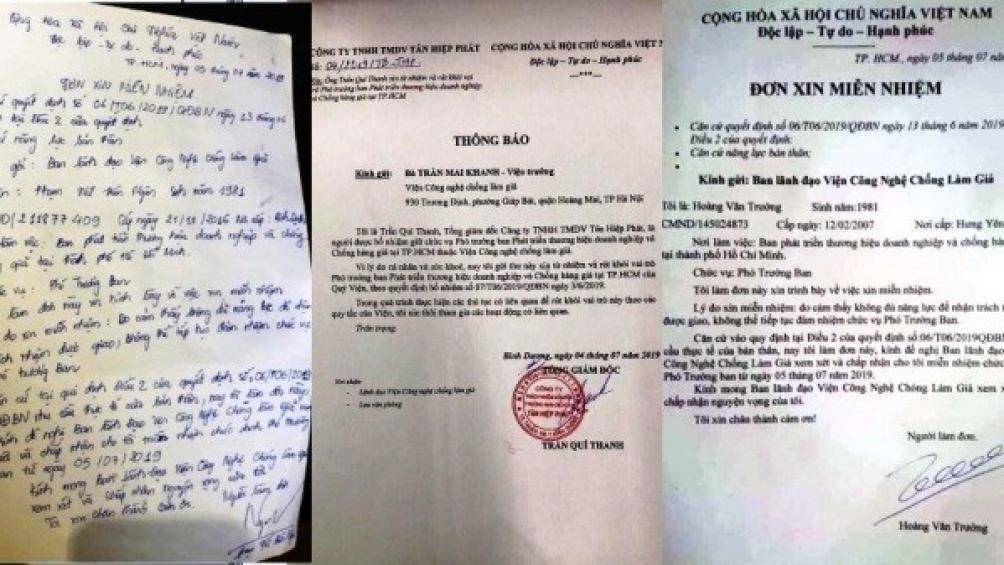 Cộng Hòa Xã Hội Chủ Nghĩa Việt Nam
Độc lập - Tự do - Hạnh phúc
TP.HCM, ngày 05 tháng 07 năm 2019
ĐƠN XIN MIỄN NHIỆM
quyết định số 06/T06/2019/QĐBN ngày 13 tháng 06
tại Điều 2 của quyết định
năng lực bản thân
gởi: Ban lãnh đạo Viện Công Nghệ Chống Làm Giả
Phạm sinh năm 1981
211877409 Cấp ngày 21/11/2016
Ban phát triển thương hiệu doanh nghiệp và chống
giả tại
vụ: Phó Trưởng Ban
làm đơn này xin trình bày về việc xin miễn nhiệm
do xin miễn nhiệm: Do cảm thấy không đủ năng lực để
nhận được giao, không thể tiếp tục đảm nhận chức vụ
Trưởng Ban
cứ tại qui định Điều 2 của quyết định số: 06/T06/2019
QĐBN nhu cầu thực tế của bản thân, nay tôi làm đơn này,
kính đề nghị Ban lãnh đạo Viện Công Nghệ Chống Làm Giả xem
và chấp nhận cho tôi miễn nhiệm chức danh phó trưởng
ban từ ngày 05/07/2019
Kính mong Ban lãnh đạo Viện Công Nghệ Chống Làm giả
xem xét và chấp nhận nguyện vọng của tôi
Tôi xin chân thành cảm ơn.
Người làm đơn
CÔNG TY TNHH TMDV TÂN HIỆP PHÁT
CỘNG HÒA XÃ HỘI CHỦ NGHĨA VIỆT
Độc lập - Tự do - Hạnh phúc
Ông Trần Quí Thanh xin từ nhiệm và rút khỏi vai
trò Phó trưởng ban Phát triển thương hiệu doanh nghiệp
và Chống hàng giả tại TP.HCM
THÔNG BÁO
Kính gửi: Bà TRẦN MAI KHANH - Viện trưởng
Viện Công nghệ chống làm giả
930 Trương Định, phường Giáp Bát, quận Hoàng Mai, TP Hà Nội
Tôi là Trần Quí Thanh, Tổng giám đốc Công ty TNHH TMDV Tân Hiệp Phát, là
người được bổ nhiệm giữ chức vụ Phó trưởng ban Phát triển thương hiệu doanh nghiệp và
Chống hàng giả tại TP.HCM thuộc Viện Công nghệ chống làm giả.
Vì lý do cá nhân và sức khoẻ, nay tôi gửi thư này xin từ nhiệm và rút khỏi vai trò
Phó trưởng ban Phát triển thương hiệu doanh nghiệp và Chống hàng giả tại TP.HCM của
Quý Viện, theo quyết định bổ nhiệm số 07/T06/2019/QĐBN ngày 3/6/2019.
Trong quá trình thực hiện các thủ tục có liên quan để rút khỏi vai trò này theo các
quy tắc của Viện, tôi xin thôi tham gia các hoạt động có liên quan.
Trân trọng.
Bình Dương, ngày 04 tháng 07 năm 2019
TỔNG GIÁM ĐỐC
Nơi nhận:
- Lãnh đạo Viện Công nghệ chống làm giả
- Lưu văn phòng
CÔNG TY
TÂN HIỆP PHÁT
TRẦN QUÍ THANH
CỘNG HÒA XÃ HỘI CHỦ NGHĨA VIỆT NAM
Độc lập – Tự do – Hạnh phúc
TP. HCM, ngày 05 tháng 07
ĐƠN XIN MIỄN NHIỆM
• Căn cứ quyết định số 06/T06/2019/QĐBN ngày 13 tháng 6 năm 2019
Điều 2 của quyết định;
• Căn cứ năng lực bản thân;
•
Kính gửi: Ban lãnh đạo Viện Công Nghệ Chống Làm Giả
Tôi là: Hoàng Văn Trưởng Sinh năm:1981
CMND/145024873 Cấp ngày: 12/02/2007 Nơi cấp: Hưng Yên
Nơi làm việc: Ban phát triển thương hiệu doanh nghiệp và chống
tại thành phố Hồ Chí Minh.
Chức vụ: Phó Trưởng Ban
Tôi làm đơn này xin trình bày về việc xin miễn nhiệm.
Lý do xin miễn nhiệm: do cảm thấy không đủ năng lực để nhận trách
được giao, không thể tiếp tục đảm nhiệm chức vụ Phó Trưởng Ban.
Căn cứ vào quy định tại Điều 2 của quyết định số:06/T06/2019QĐBN
cầu thực tế của bản thân, nay tôi làm đơn này, kính đề nghị Ban lãnh
Công Nghệ Chống Làm Giả xem xét và chấp nhận cho tôi miễn nhiệm chức
Phó Trưởng ban từ ngày 05 tháng 07 năm 2019.
Kính mong Ban lãnh đạo Viện Công Nghệ Chống Làm Giả xem
chấp nhận nguyện vọng của tôi.
Tôi xin chân thành cảm ơn!
Người làm đơn.
Hoàng Văn Trưởng